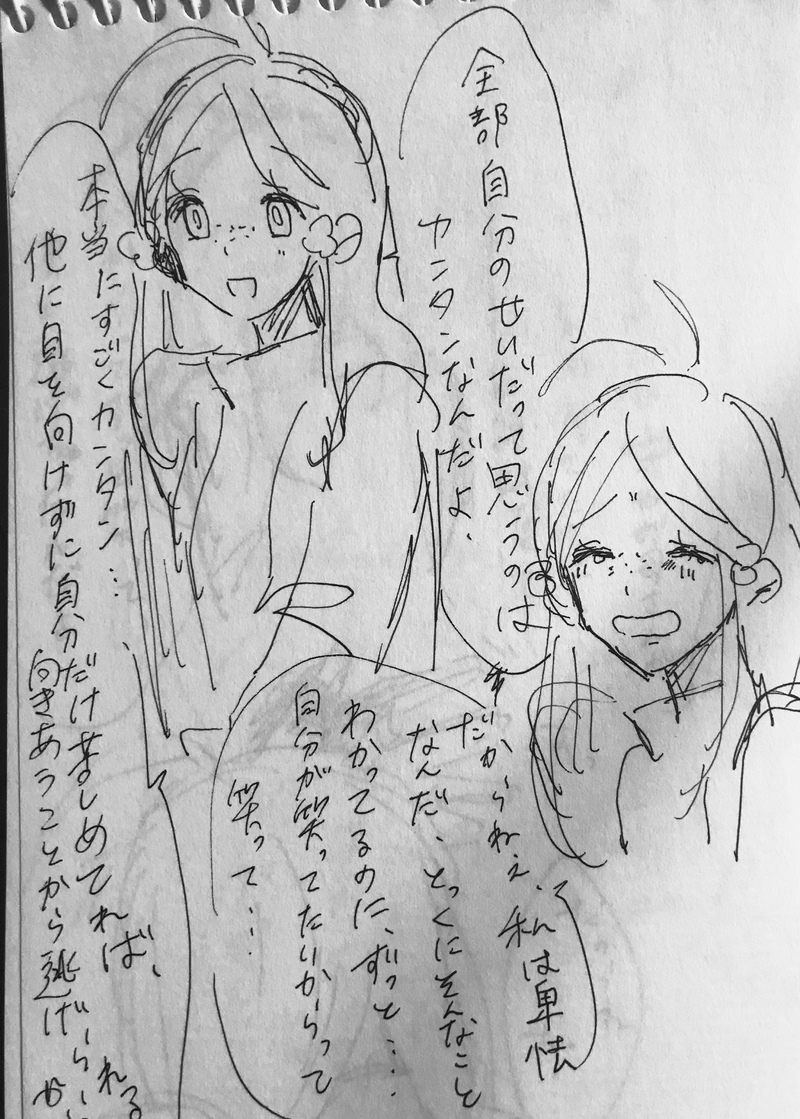 全部自分のせいだって思うのは
カンタンなんだよ、
だからねぇ、私は卑怯
なんだ、とっくにそんなこと
わかってるのに、ずっと…
自分が笑ってたいからって
笑って…
本当にすごくカンタン…
他に目を向けずに自分だけ苦しめてれば、
向きあうことから逃げられる
から